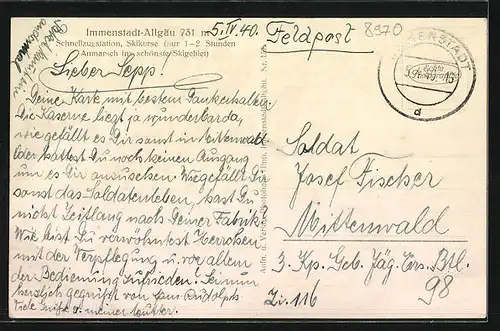 Immenstadt-Allgäu 731 m
Schnellzugstation, Skikurse (nur 1-2 Stunden
Anmarsch ins schönste Skigebiet)
5. IV. 40.
Feldpost
8970
IMMENSTADT
Echte
Photographie
d
Lieber Sepp!
Deine Karte mit bestem Dank erhalten.
Die Kaserne liegt ja wunderbar da,
wie gefällt es Dir sonst in Mittenwald
oder hattest Du noch keinen Ausgang
um es Dir anzusehen. Wie gefällt Dir
sonst das Soldatenleben, hast Du
nicht Zeitlang nach Deiner Fabrik?
Wie bist Du verwöhntest Herrchen
mit der Verpflegung u. vor allem
der Bedienung zufrieden? Sei nun
herzlich gegrüßt von
Viele Grüße v. meiner Mutter.
Soldat
Josef Fischer
Mittenwald
3. Kp. Geb. Jäg. Ers. Btl.
98
Zi. 116